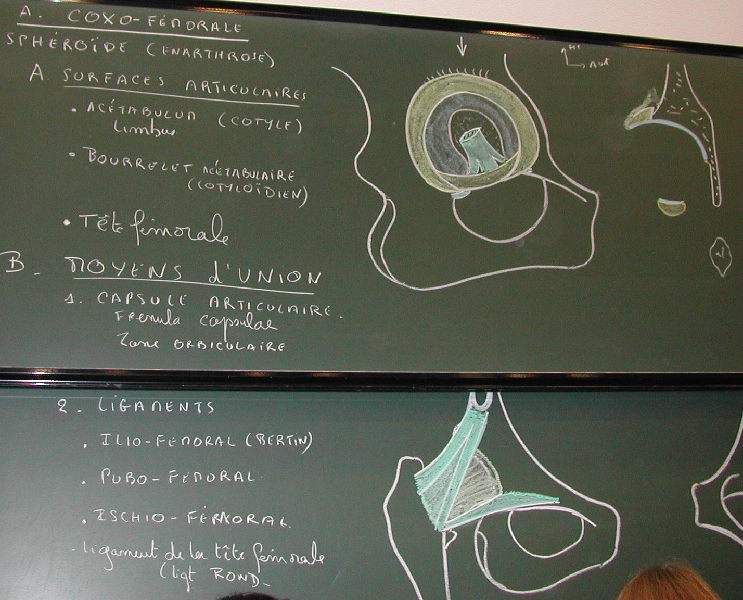 A. COXO-FÉMORALE
SPHÉROÏDE (ENARTHROSE)
A SURFACES ARTICULAIRES
• ACÉTABULUM (COTYLE)
Limbus
• BOURRELET ACÉTABULAIRE
(COTYLOÏDIEN)
• Tête fémorale
B. MOYENS d'UNION
1. CAPSULE ARTICULAIRE.
Frenula capsulae
Zone ORBICULAIRE
2. LIGAMENTS
. ILIO-FÉMORAL (BERTIN)
. PUBO-FÉMORAL
. ISCHIO-FÉMORAL
- Ligament de la tête fémorale
(ligt ROND_